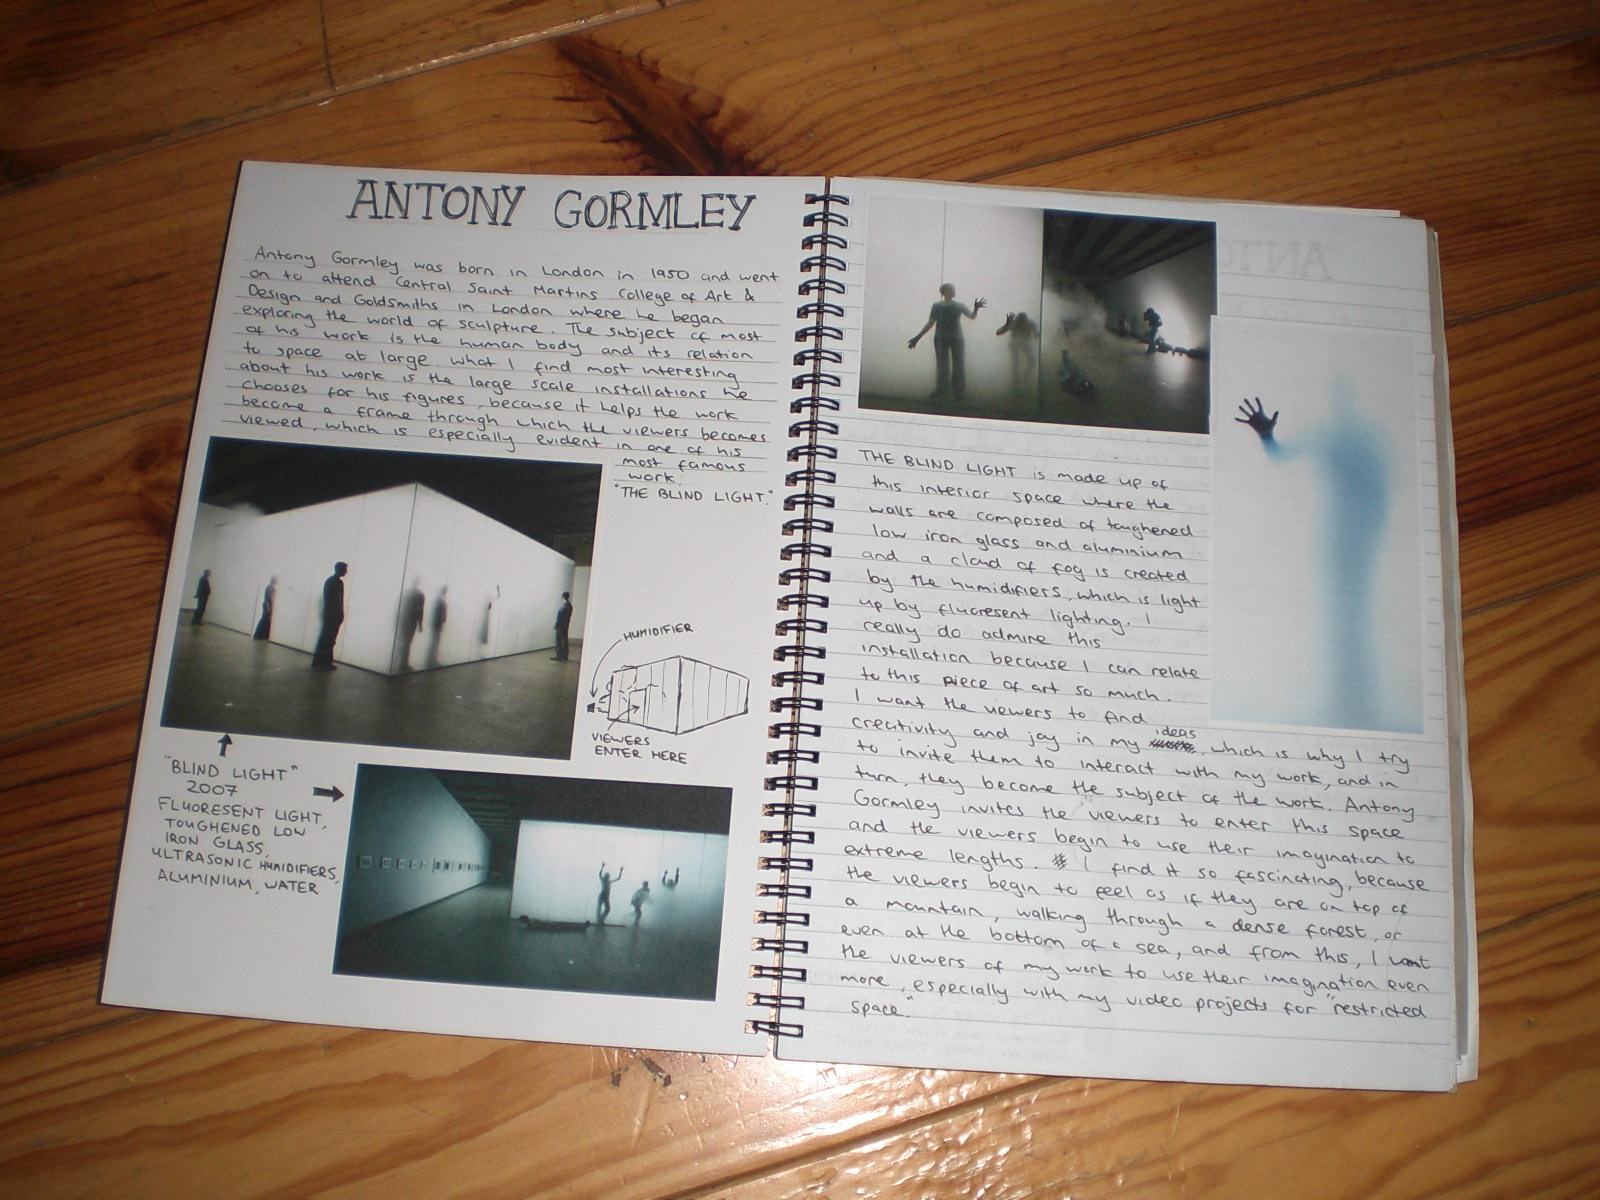 ANTONY GORMLEY
Antony Gormley was born in London in 1950 and went
on to attend Central Saint Martins College of Art &
Design and Goldsmiths in London where he began
exploring the world of sculpture. The subject of most
of his work is the human body and its relation
to space at large. What I find most interesting
about his work is the large scale installations he
chooses for his figures, because it helps the work
become a frame through which the viewers becomes
viewed, which is especially evident in one of his
most famous
work.
"THE BLIND LIGHT."
HUMIDIFIER
VIEWERS
ENTER HERE
"BLIND LIGHT"
2007
FLUORESENT LIGHT,
TOUGHENED LOW
IRON GLASS,
ULTRASONIC HUMIDIFIERS,
ALUMINIUM, WATER
THE BLIND LIGHT is made up of
this interior space where the
walls are composed of toughened
low iron glass and aluminium
and a cloud of fog is created
by the humidifiers, which is light
up by fluoresent lighting. I
really do admire this
installation because I can relate
to this piece of art so much.
I want the viewers to find
creativity and joy in my ideas, which is why I try
to invite them to interact with my work, and in
turn, they become the subject of the work. Antony
Gormley invites the viewers to enter this space
and the viewers begin to use their imagination to
extreme lengths. I find it so fascinating, because
the viewers begin to feel as if they are on top of
a mountain, walking through a dense forest, or
even at the bottom of a sea, and from this, I want
the viewers of my work to use their imagination even
more, especially with my video projects for "restricted
space."